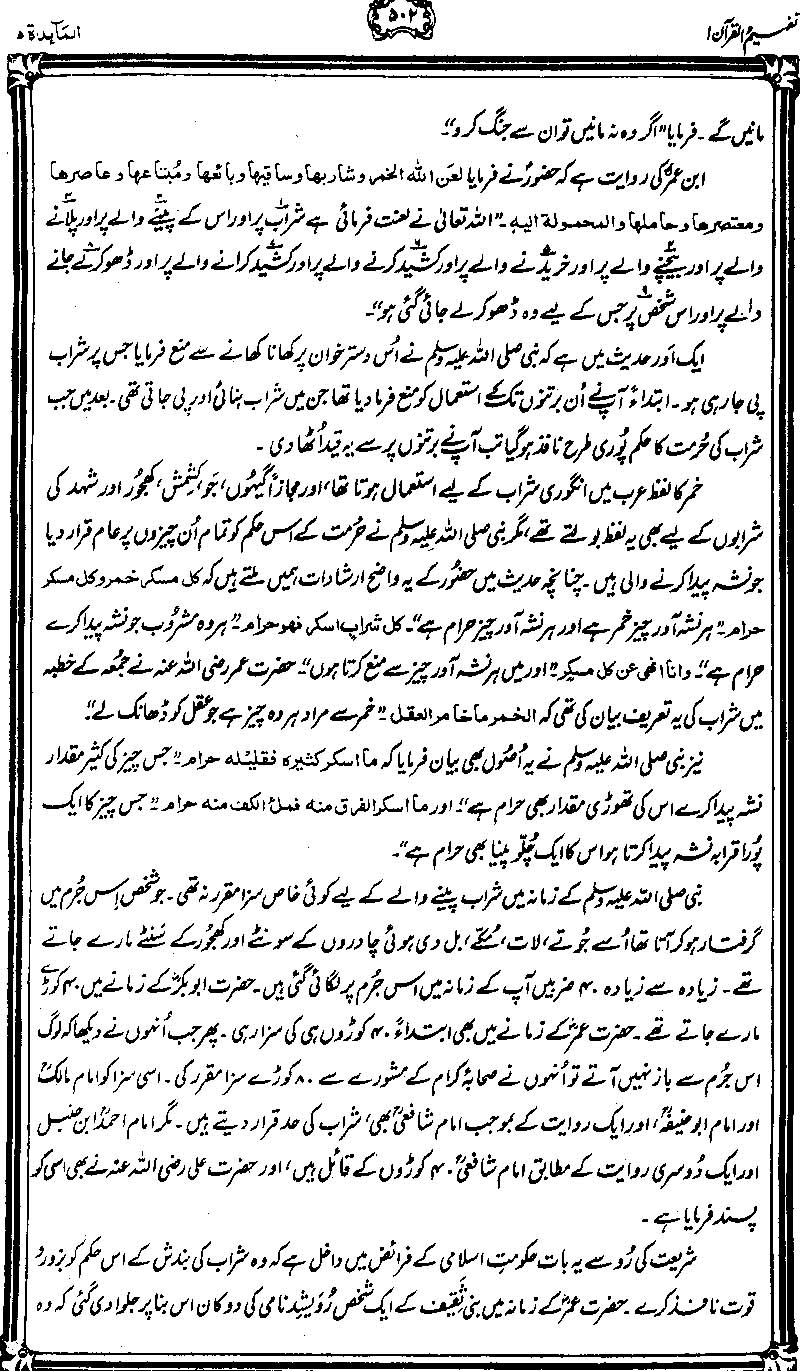 تفہیم القرآن ۱
۵۰۲
المآیدۃ ۵
مانیں گے۔ فرمایا "اگر وہ نہ مانیں تو ان سے جنگ کرو"۔
ابن عمرؓ کی روایت ہے کہ حضورؐ نے فرمایا لعن الله الخمر وشاربها وساقيها وبائعها ومُبتاعها وعاصرها
ومعتصرها وحاملها والمحمولة اليه۔ "اللہ تعالیٰ نے لعنت فرمائی ہے شراب۱ پر اور اس کے پینے۲ والے پر اور پلانے۳
والے پر اور بیچنے۴ والے پر اور خریدنے۵ والے پر اور کشید۶ کرنے والے پر اور کشید۷ کرانے والے پر اور ڈھو کر۸ لے جانے
والے پر اور اس شخص۹ پر جس کے لیے وہ ڈھو کر لے جائی گئی ہو"۔
ایک اور حدیث میں ہے کہ نبی صلی اللہ علیہ وسلم نے اُس دسترخوان پر کھانا کھانے سے منع فرمایا جس پر شراب
پی جا رہی ہو۔ ابتداءً آپ نے اُن برتنوں تک کے استعمال کو منع فرما دیا تھا جن میں شراب بنائی اور پی جاتی تھی۔ بعد میں جب
شراب کی حُرمت کا حکم پُوری طرح نافذ ہو گیا تب آپ نے برتنوں پر سے یہ قید اُٹھا دی۔
خمر کا لفظ عرب میں انگوری شراب کے لیے استعمال ہوتا تھا، اور مجازاً گیہوں، جَو، کِشمش، کھجور اور شہد کی
شرابوں کے لیے بھی یہ لفظ بولتے تھے، مگر نبی صلی اللہ علیہ وسلم نے حرمت کے اس حکم کو تمام اُن چیزوں پر عام قرار دیا
جو نشہ پیدا کرنے والی ہیں۔ چنانچہ حدیث میں حضورؐ کے یہ واضح ارشادات ہمیں ملتے ہیں کہ كل مسكر خمر وكل مسكر
حرام۔ "ہر نشہ آور چیز خمر ہے اور ہر نشہ آور چیز حرام ہے"۔ كل شراب اسكر فهو حرام۔ "ہر وہ مشرُوب جو نشہ پیدا کرے
حرام ہے"۔ وانا انهى عن كل مسكر۔ "اور میں ہر نشہ آور چیز سے منع کرتا ہوں"۔ حضرت عمر رضی اللہ عنہ نے جُمعہ کے خطبہ
میں شراب کی یہ تعریف بیان کی تھی کہ الخمر ما خامر العقل۔ "خمر سے مراد ہر وہ چیز ہے جو عقل کو ڈھانک لے"۔
نیز نبی صلی اللہ علیہ وسلم نے یہ اُصُول بھی بیان فرمایا کہ ما اسكر كثيره فقليله حرام۔ "جس چیز کی کثیر مقدار
نشہ پیدا کرے اس کی تھوڑی مقدار بھی حرام ہے"۔ اور ما اسكر الفرق منه فملؤ الكف منه حرام۔ "جس چیز کا ایک
پُورا قرابہ نشہ پیدا کرتا ہو اس کا ایک چُلّو پینا بھی حرام ہے"۔
نبی صلی اللہ علیہ وسلم کے زمانہ میں شراب پینے والے کے لیے کوئی خاص سزا مقرر نہ تھی۔ جو شخص اِس جُرم میں
گرفتار ہو کر آتا تھا اُسے جُوتے، لات، مُکّے، بل دی ہوئی چادروں کے سونٹے اور کھجور کے سَنٹے مارے جاتے
تھے۔ زیادہ سے زیادہ ۴۰ ضربیں آپ کے زمانہ میں اس جُرم پر لگائی گئی ہیں۔ حضرت ابوبکرؓ کے زمانے میں ۴۰ کوڑے
مارے جاتے تھے۔ حضرت عمرؓ کے زمانے میں بھی ابتداءً ۴۰ کوڑوں ہی کی سزا رہی۔ پھر جب اُنھوں نے دیکھا کہ لوگ
اس جُرم سے باز نہیں آتے تو اُنھوں نے صحابۂ کرام کے مشورے سے ۸۰ کوڑے سزا مقرر کی۔ اسی سزا کو امام مالکؒ
اور امام ابوحنیفہؒ، اور ایک روایت کے بموجب امام شافعیؒ بھی، شراب کی حد قرار دیتے ہیں۔ مگر امام احمدؒ ابن حنبل
اور ایک دُوسری روایت کے مطابق امام شافعیؒ ۴۰ کوڑوں کے قائل ہیں، اور حضرت علی رضی اللہ عنہ نے بھی اسی کو
پسند فرمایا ہے۔
شریعت کی رُو سے یہ بات حکومتِ اسلامی کے فرائض میں داخل ہے کہ وہ شراب کی بندش کے اس حکم کو بزور و
قوت نافذ کرے۔ حضرت عمرؓ کے زمانہ میں بنی ثَقِیف کے ایک شخص رُوَیشِد نامی کی دوکان اس بنا پر جلوا دی گئی کہ وہ